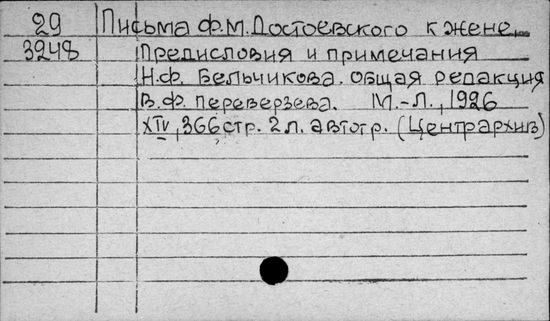 29 Письма Ф.М. Достоевского к жене.
3248 Предисловия и примечания
Н.Ф. Бельчикова. общая редакция
В.Ф. Переверзева. М.-Л., 1926
XIV, 366 стр. 2 л. автогр. (Центрархив)